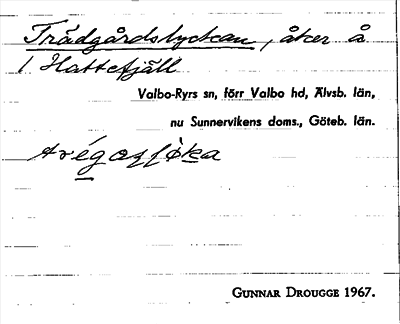 Trädgårdslyckan, åker å
1 Hattefjäll
Valbo-Ryrs sn, förr Valbo hd, Älvsb. län,
nu Sunnervikens doms., Göteb. län.
GUNNAR DROUGGE 1967.